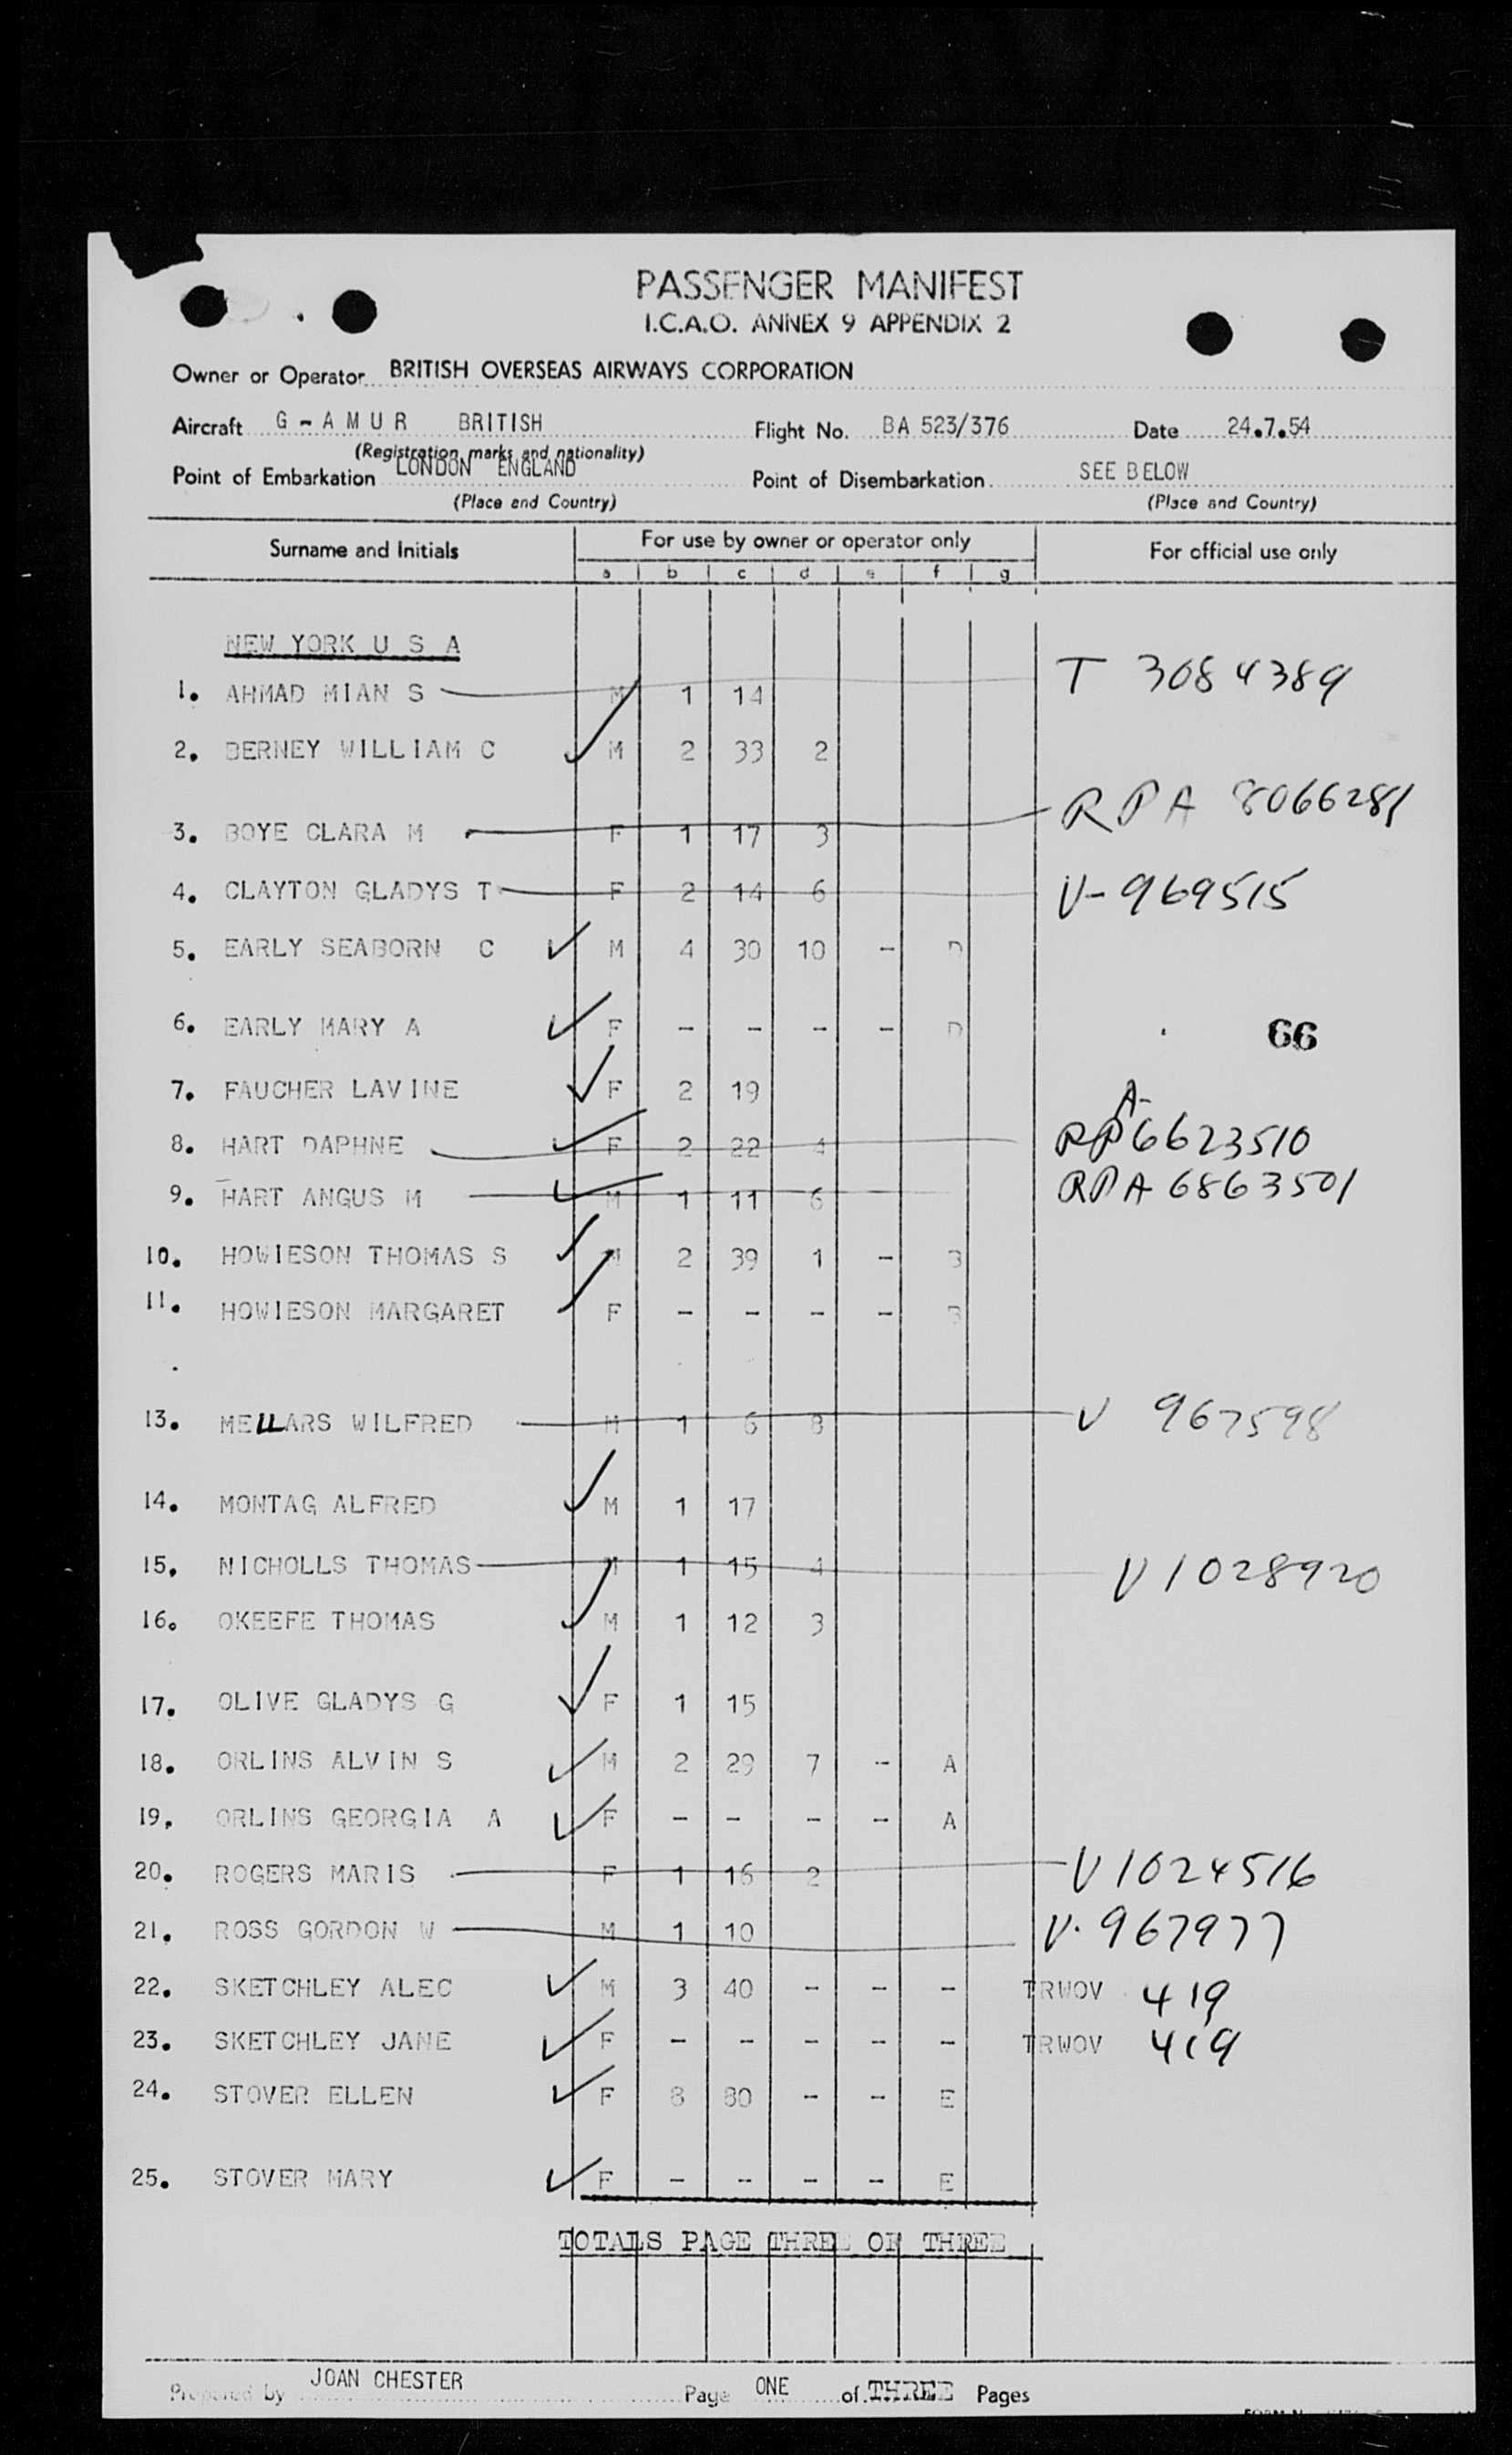 PASSENGER MANIFEST
I.C.A.O. ANNEX 9 APPENDIX 2
Owner or Operator BRITISH OVERSEAS AIRWAYS CORPORATION
Aircraft G-AMUR BRITISH Flight No. BA 523/376 Date 24.7.54
(Registration marks and nationality)
Point of Embarkation LONDON ENGLAND Point of Disembarkation SEE BELOW
(Place and Country) (Place and Country)
Surname and Initials For use by owner or operator only For official use only
a b c d e f g
NEW YORK U S A
1. AHMAD MIAN S M 1 14 T 3084389
2. BERNEY WILLIAM C M 2 33 2
3. BOYE CLARA M F 1 17 3 RPA 8066281
4. CLAYTON GLADYS T F 2 14 6 V-969515
5. EARLY SEABORN C M 4 30 10 - D
6. EARLY MARY A F - - - - D 66
7. FAUCHER LAVINE F 2 19
8. HART DAPHNE F 2 22 4 A- RP6623510
9. HART ANGUS M M 1 11 6 RPA 6863501
10. HOWIESON THOMAS S M 2 39 1 - B
11. HOWIESON MARGARET F - - - - B
13. MELLARS WILFRED M 1 6 8 V 967598
14. MONTAG ALFRED M 1 17
15. NICHOLLS THOMAS M 1 15 4 V1028920
16. OKEEFE THOMAS M 1 12 3
17. OLIVE GLADYS G F 1 15
18. ORLINS ALVIN S M 2 29 7 - A
19. ORLINS GEORGIA A F - - - - A
20. ROGERS MARIS F 1 16 2 V1024516
21. ROSS GORDON W M 1 10 V. 967977
22. SKETCHLEY ALEC M 3 40 - - - TRWOV 419
23. SKETCHLEY JANE F - - - - - TRWOV 419
24. STOVER ELLEN F 8 80 - - E
25. STOVER MARY F - - - - E
TOTALS PAGE THREE OF THREE
Prepared by JOAN CHESTER Page ONE of THREE Pages